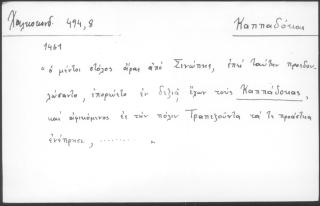 Χαλκοκονδ. 494,8 Καππαδόκαι
1461
"ὁ μέντοι στόλος ἄρας ἀπὸ Σινώπης, ἐπεὶ ταύτην προσεδου-
λώσαντο, ἐπορεύετο ἐν δεξιᾷ ἔχων τοὺς Καππάδοκας,
καὶ ἀφικόμενος ἐς τὴν πόλιν Τραπεζοῦντα τά τε προάστεια
ἐνέπρησε, ......... "